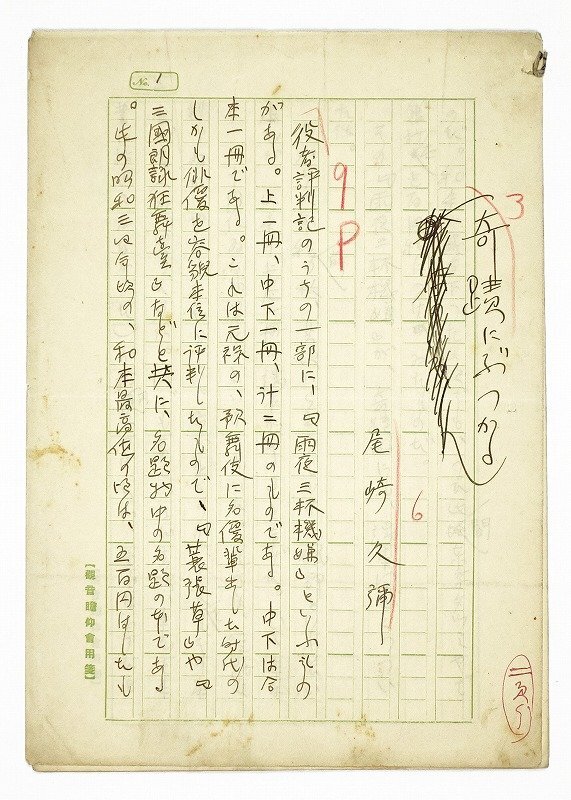 No. 1
3
奇蹟にぶつかる
6
尾崎久彌
9P
役者評判記のうちの一部に、『雨夜三杯機嫌』といふもの
がある。上一冊、中下一冊、計二冊のものである。中下は合
本一冊である。これは元祿の、歌舞伎に名優輩出した時代の
しかも俳優を容貌本位に評判したもので、『蓑張草』や『
三國朗詠狂舞臺』などと共に、名題物中の名題の本である
。先の昭和三四年頃の、和本最高値の頃は、五百円はしたも
【觀音瞻仰會用箋】